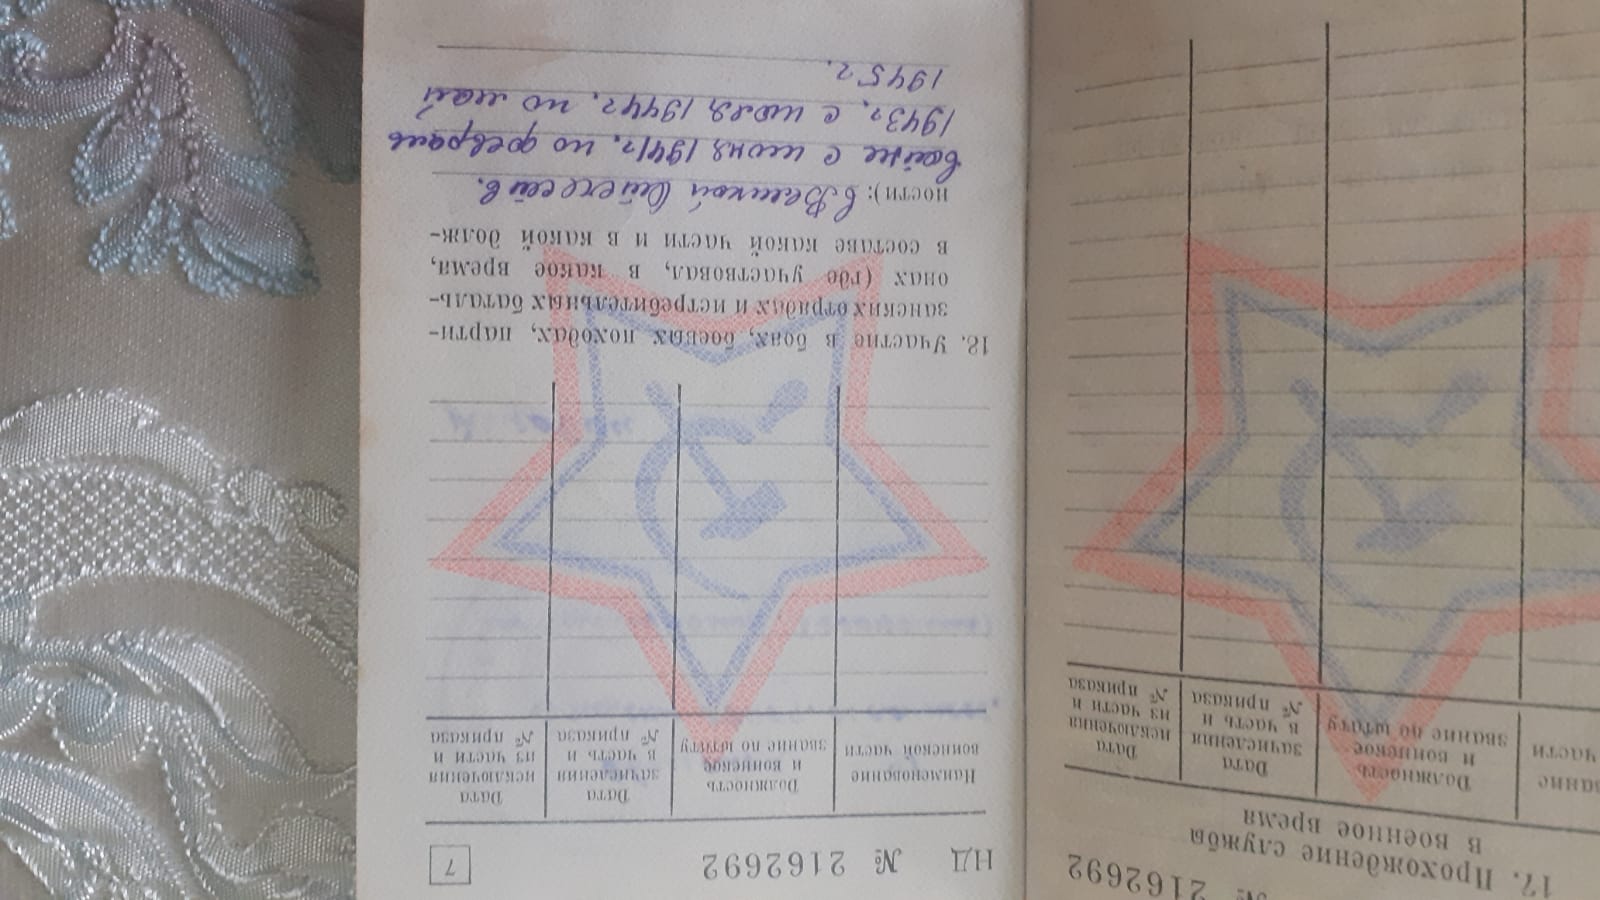 № 2162692
17. Прохождение службы
в военное время
части
Должность
и воинское
звание по штату
Дата
зачисления
в часть и
№ приказа
Дата
исключения
из части и
№ приказа
НД № 2162692
7
Наименование
воинской части
Должность
и воинское
звание по штату
Дата
зачисления
в часть и
№ приказа
Дата
исключения
из части и
№ приказа
18. Участие в боях, боевых походах, парти-
занских отрядах и истребительных баталь-
онах (где участвовал, в какое время,
в составе какой части и в какой долж-
ности): в Великой Отечеств.
войне с июня 1941г. по февраль
1943г, с июля 1944г. по май
1945г.